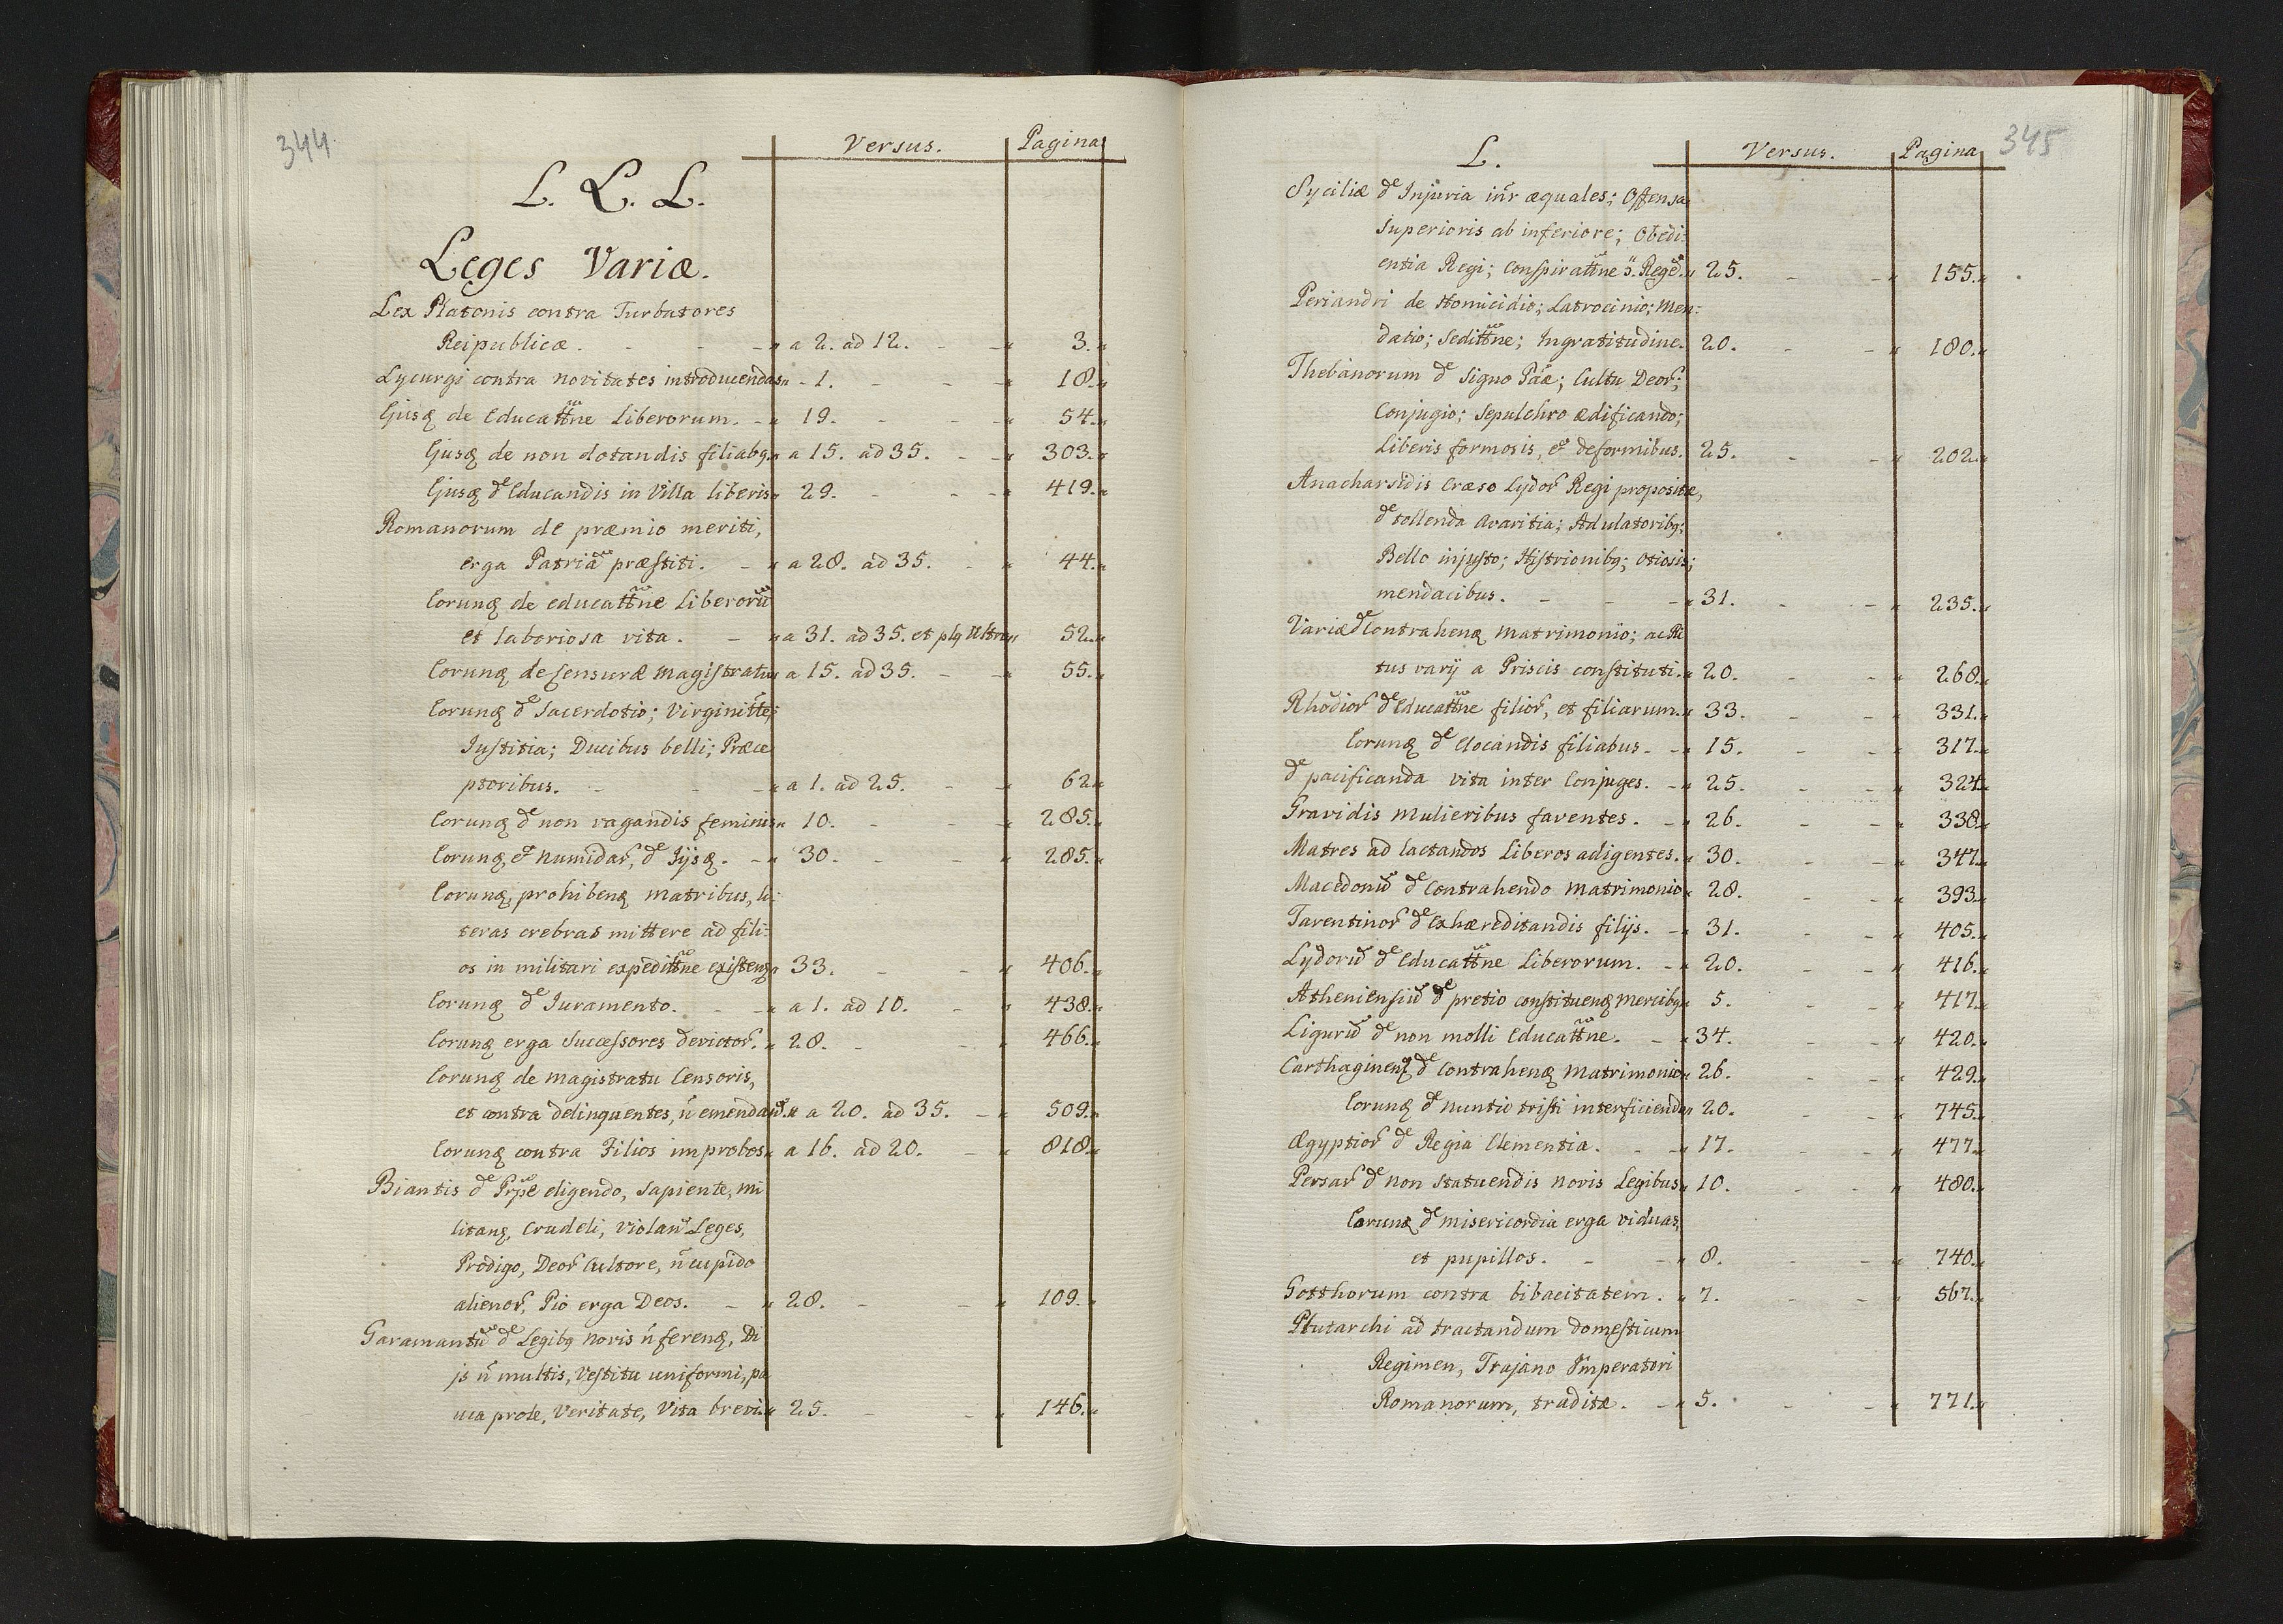 344.
Versus. Pagina
L. L. L.
Leges Variæ.
Lex Platonis contra Turbatores
Reipublicæ. - - - a 2. ad 12. - - 3.
Lycurgi contra novitates introducendas - 1. - - - 18.
Ejusq de Educattne Liberorum. - 19. - - - 54.
Ejusq de non dotandis filiabq. a 15. ad 35. - - 303.
Ejusq de Educandis in Villa liberis 29. - - - 419.
Romanorum de præmio meriti,
erga Patriã præstiti. - a 28. ad 35. - 44.
Eorunq de educattne Liberorũ
et laboriosa vita. - a 31. ad 35. et plq Ultra 52.
Eorunq de Censuræ Magistratu a 15. ad 35. - - 55.
Eorunq de Sacerdotio; Virginitte;
Justitia; Ducibus belli; Præce
ptoribus. - - - a 1. ad 25. - - 62
Eorunq de non vagandis feminis 10. - - - 285.
Eorunq, et Numidar, de Iisq. - 30. - - 285.
Eorunq, prohibenq matribus, li-
teras crebras mittere ad fili-
os in militari expedittne existenq 33. - - 406.
Eorunq de Juramento. - - a 1. ad 10. - 438.
Eorunq erga Successores devictor. 28. - - 466.
Eorunq de magistratu Censoris,
et contra delinquentes, ñ emendand. a 20. ad 35. - 509.
Eorunq contra Filios improbos a 16. ad 20. - 818.
Biantis de Prpe eligendo, Sapiente, mi
litanq, Crudeli, violan Leges,
Prodigo, Deor Cultore, ñ cupido
alienor, Pio erga Deos. - 28. - - 109.
Garamantũ de Legibq novis ñ ferenq, Di
js ñ multis, Vestitu uniformi, pa
uca prole, Veritate, Vita brevi. 25. - - 146.
345
L. Versus. Pagina
Syciliæ de Injuria inr æquales; Offensa
Superioris ab inferiore; Obedi-
entia Regi; Conspirattne Regē. 25. - - 155.
Periandri de Homicidio; Latrocinio; Men-
datio; Sedittne; Ingratitudine. 20. - - 180.
Thebanorum de Signo Paæ; Cultu Deor;
Conjugio; Sepulchro ædificando;
Liberis formosis, et deformibus. 25. - - 202.
Anacharsidis Cræso Lydor Regi propositæ,
de tollenda Avaritia; Adulatoribq;
Bello injusto; Histrionibq; Otiosis;
mendacibus. - - - 31. - - 235.
Variæ de Contrahenq Matrimonio; ac Ri
tus varij a Priscis constituti. 20. - - 268.
Rhodior de Educattne filior, et filiarum. 33. - - 331.
Eorunq de Elocandis filiabus. - 15. - - 317.
de pacificanda vita inter Conjuges. - 25. - - 324.
Gravidis Mulieribus faventes. - 26. - - 338.
Matres ad lactandos Liberos adigentes. 30. - - 347.
Macedonũ de Contrahendo Matrimonio 28. - - 393.
Tarentinor de Exhæreditandis filijs. - 31. - - 405.
Lydorũ de Educattne Liberorum. - 20. - - 416.
Atheniensiũ de pretio constituenq Mercibq 5. - - 417.
Ligurũ de non molli Educattne. - 34. - - 420.
Carthaginenq de Contrahenq Matrimonio 26. - - 429.
Eorunq de Nuntio tristi interficiendo 20. - - 745.
Ægyptior de Regia Clementia. - - 17. - - 477.
Persar de non statuendis novis Legibus 10. - - 480.
Eorunq de misericordia erga viduas,
et pupillos. - - 8. - - 740.
Gotthorum contra bibacitatem. 7. - - 567.
Plutarchi ad tractandum domesticum
Regimen, Trajano Imperatori
Romanorum, traditæ. - 5. - - 771.